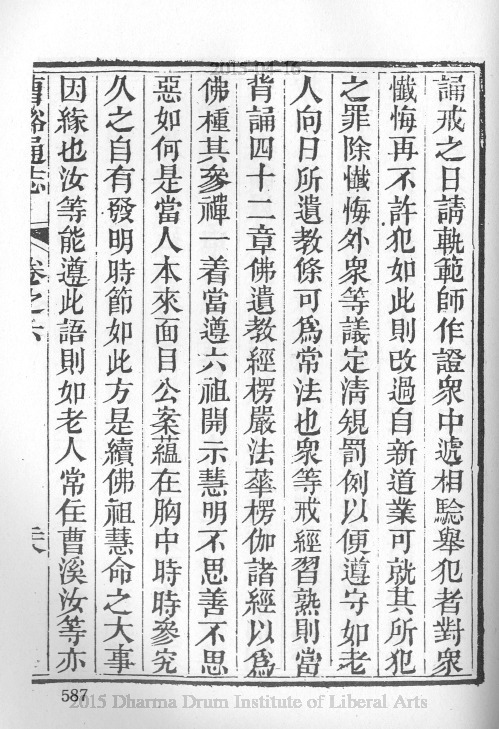 2015.04.16
誦戒之日請軌範師作證衆中遞相驗舉犯者對衆
懺悔再不許犯如此則改過自新道業可就其所犯
之罪除懺悔外衆等議定清規罰例以便遵守如老
人向日所遺教條可爲常法也衆等戒經習熟則當
背誦四十二章佛遺教經楞嚴法華楞伽諸經以爲
佛種其參禪一着當遵六祖開示慧明不思善不思
惡如何是當人本來面目公案蘊在胸中時時參究
久之自有發明時節如此方是續佛祖慧命之大事
因緣也汝等能遵此語則如老人常在曹溪汝等亦
曹谿通志 卷之六
587
2015 Dharma Drum Institute of Liberal Arts